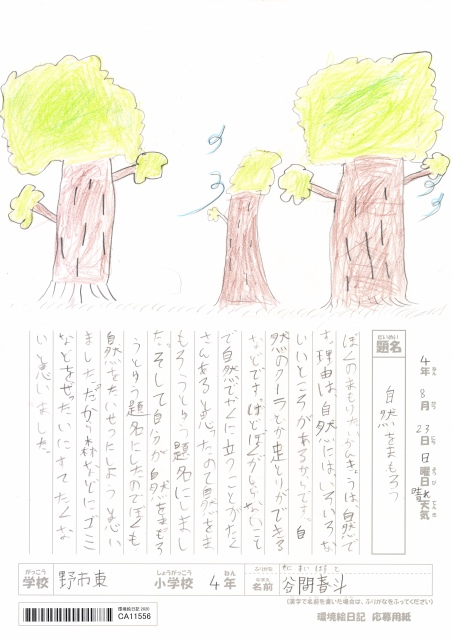 4年 8月 23日 日曜日 晴れ 天気
ねん がつ にち ようび てんき
だいめい
題名
自然をまもろう
ぼくのまもりたいかんきょうは自然で
す。理由は、自然にはいろいろな
いいところがあるからです。自
然のクーラーとか
などです。けどぼくがしらないこと
で自然でやくに立つことがたく
さんあると思ったので自然をま
もろうという題名にしまし
た。そして自分が自然をまもろ
うという題名にしたのでぼくも
自然をたいせつにしようと思い
ました。だから森などにゴミ
などをぜったいにすてたくな
いと思いました。
がっこう
学校
野市東
しょうがっこう
小学校
4年
ねん
ふりがな
たにま はると
なまえ
名前
谷間春斗
(漢字で名前を書いた場合は、ふりがなをふってください)
環境絵日記 2020
CA11556
環境絵日記 応募用紙